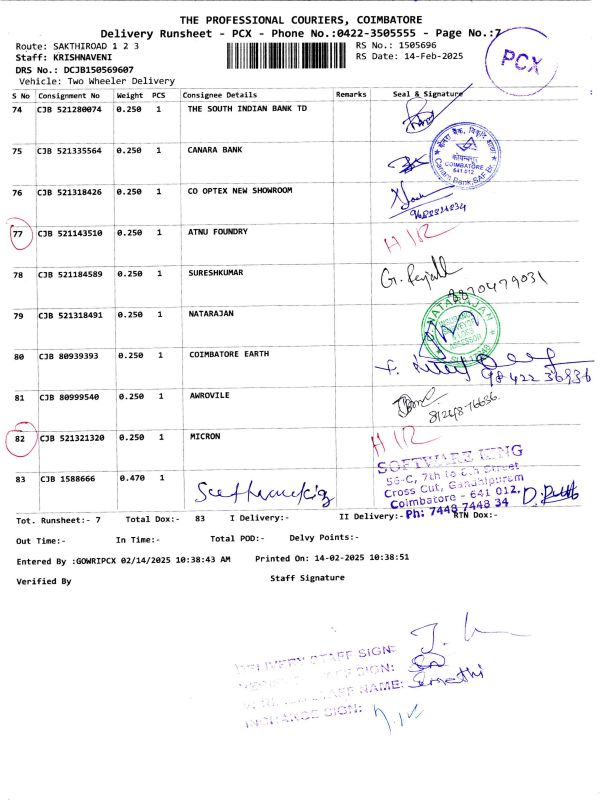 THE PROFESSIONAL COURIERS, COIMBATORE
Delivery Runsheet - PCX - Phone No.:0422-3505555 - Page No.:7
Route: SAKTHIROAD 1 2 3
RS No.: 1505696
Staff: KRISHNAVENI
RS Date: 14-Feb-2025
DRS No.: DCJB150569607
Vehicle: Two Wheeler Delivery
PCX
S No Consignment No Weight PCS Consignee Details Remarks Seal & Signature
74 CJB 521280074 0.250 1 THE SOUTH INDIAN BANK TD
75 CJB 521335564 0.250 1 CANARA BANK
COIMBATORE
641 012
76 CJB 521318426 0.250 1 CO OPTEX NEW SHOWROOM
77 CJB 521143510 0.250 1 ATNU FOUNDRY H/R
78 CJB 521184589 0.250 1 SURESHKUMAR
8870479031
79 CJB 521318491 0.250 1 NATARAJAN
NATARAJAN
80 CJB 80939393 0.250 1 COIMBATORE EARTH
98422 36936
81 CJB 80999540 0.250 1 AWROVILE
8124876636
82 CJB 521321320 0.250 1 MICRON H/R
83 CJB 1588666 0.470 1
SOFTWARE KING
56-C, 7th to 8th Street
Cross Cut, Gandhipuram
Coimbatore - 641 012.
Ph: 7448 7448 34
Tot. Runsheet:- 7 Total Dox:- 83 I Delivery:- II Delivery:- RTN Dox:-
Out Time:- In Time:- Total POD:- Delvy Points:-
Entered By :GOWRIPCX 02/14/2025 10:38:43 AM Printed On: 14-02-2025 10:38:51
Verified By Staff Signature
DELIVERY STAFF SIGN:
SIGN:
STAFF NAME:
INCHARGE SIGN: